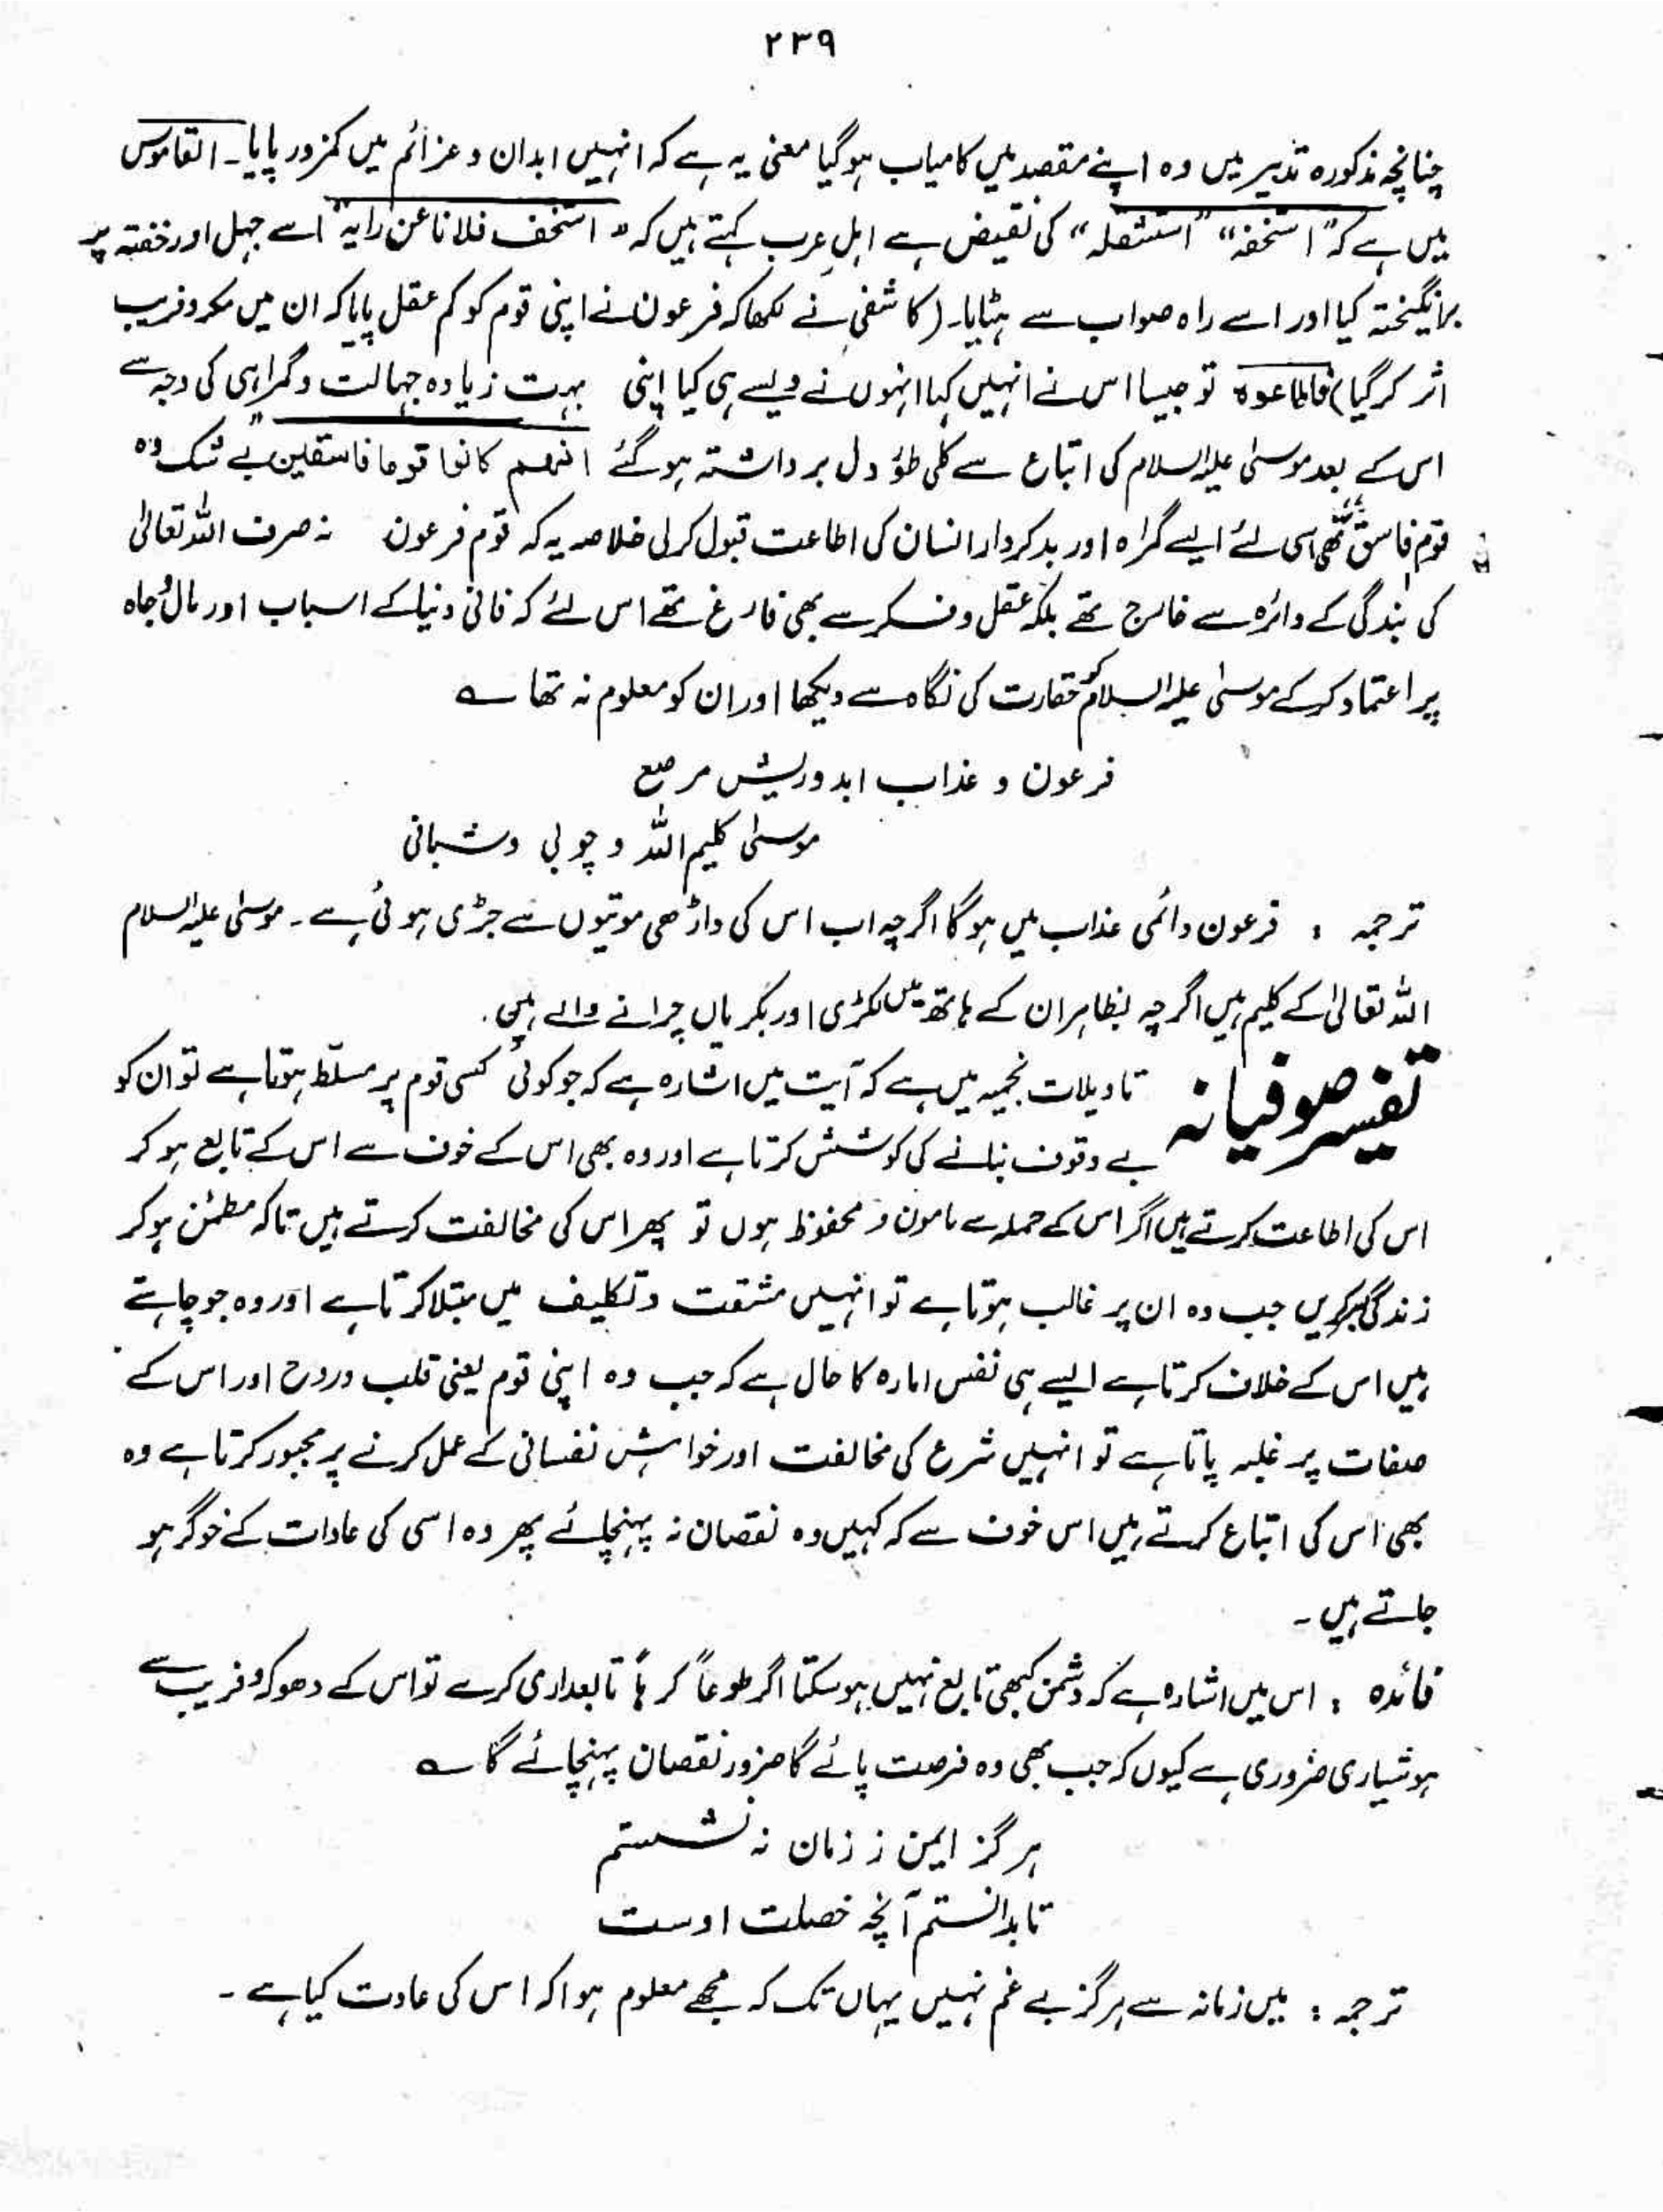 ۲۳۹
چنانچہ مذکورہ تدبیر میں وہ اپنے مقصد میں کامیاب ہوگیا معنی یہ ہے کہ انہیں ابدان و عزائم میں کمزور پایا۔ القاموس
میں ہے کہ "استخفہ" "استثقلہ" کی نقیض ہے اہلِ عرب کہتے ہیں کہ "استخف فلانا عن رایہ" اسے جہل اور خفتہ پر
برانگیختہ کیا اور اسے راہ صواب سے ہٹایا۔ (کاشفی نے لکھا کہ فرعون نے اپنی قوم کو کم عقل پایا کہ ان میں مکر و فریب
اثر کر گیا) فاطاعوہ تو جیسا اس نے انہیں کہا انہوں نے ویسے ہی کیا اپنی بہت زیادہ جہالت و گمراہی کی وجہ سے
اس کے بعد موسیٰ علیہ السلام کی اتباع سے کلی طور دل برداشتہ ہوگئے انھم کانوا قوما فاسقین بے شک وہ
قوم فاسق تھی اسی لئے ایسے گمراہ اور بدکردار انسان کی اطاعت قبول کرلی خلاصہ یہ کہ قوم فرعون نہ صرف اللہ تعالیٰ
کی بندگی کے دائرہ سے خارج تھے بلکہ عقل و فکر سے بھی فارغ تھے اس لئے کہ فانی دنیا کے اسباب اور مال و جاہ
پر اعتماد کرکے موسیٰ علیہ السلام کو حقارت کی نگاہ سے دیکھا اور ان کو معلوم نہ تھا ؎
فرعون و عذاب ابد و ریش مرصع
موسیٰ کلیم اللہ و چوبی و شبانی
ترجمہ : فرعون دائمی عذاب میں ہوگا اگرچہ اب اس کی داڑھی موتیوں سے جڑی ہوئی ہے۔ موسیٰ علیہ السلام
اللہ تعالیٰ کے کلیم ہیں اگرچہ بظاہر ان کے ہاتھ میں لکڑی اور بکریاں چرانے والے ہیں.
تفسیر صوفیانہ تاویلات نجمیہ میں ہے کہ آیت میں اشارہ ہے کہ جو کوئی کسی قوم پر مسلّط ہوتا ہے تو ان کو
بے وقوف بنانے کی کوشش کرتا ہے اور وہ بھی اس کے خوف سے اس کے تابع ہو کر
اس کی اطاعت کرتے ہیں اگر اس کے حملہ سے مامون و محفوظ ہوں تو پھر اس کی مخالفت کرتے ہیں تاکہ مطمئن ہوکر
زندگی بسر کریں جب وہ ان پر غالب ہوتا ہے تو انہیں مشقت و تکلیف میں مبتلا کرتا ہے اور وہ جو چاہتے
ہیں اس کے خلاف کرتا ہے ایسے ہی نفس امارہ کا حال ہے کہ جب وہ اپنی قوم یعنی قلب و روح اور اس کے
صفات پر غلبہ پاتا ہے تو انہیں شرع کی مخالفت اور خواہش نفسانی کے عمل کرنے پر مجبور کرتا ہے وہ
بھی اس کی اتباع کرتے ہیں اس خوف سے کہ کہیں وہ نقصان نہ پہنچائے پھر وہ اسی کی عادات کے خوگر ہو
جاتے ہیں ۔
فائدہ : اس میں اشارہ ہے کہ دشمن کبھی تابع نہیں ہوسکتا اگر طوعاً کرہاً تابعداری کرے تو اس کے دھوکہ و فریب سے
ہوشیاری ضروری ہے کیوں کہ جب بھی وہ فرصت پائے گا ضرور نقصان پہنچائے گا ؎
ہرگز ایمن ز زمان نہ نشستم
تا بدانستم آنچہ خصلت اوست
ترجمہ : میں زمانہ سے ہرگز بے غم نہیں یہاں تک کہ مجھے معلوم ہوا کہ اس کی عادت کیا ہے ۔